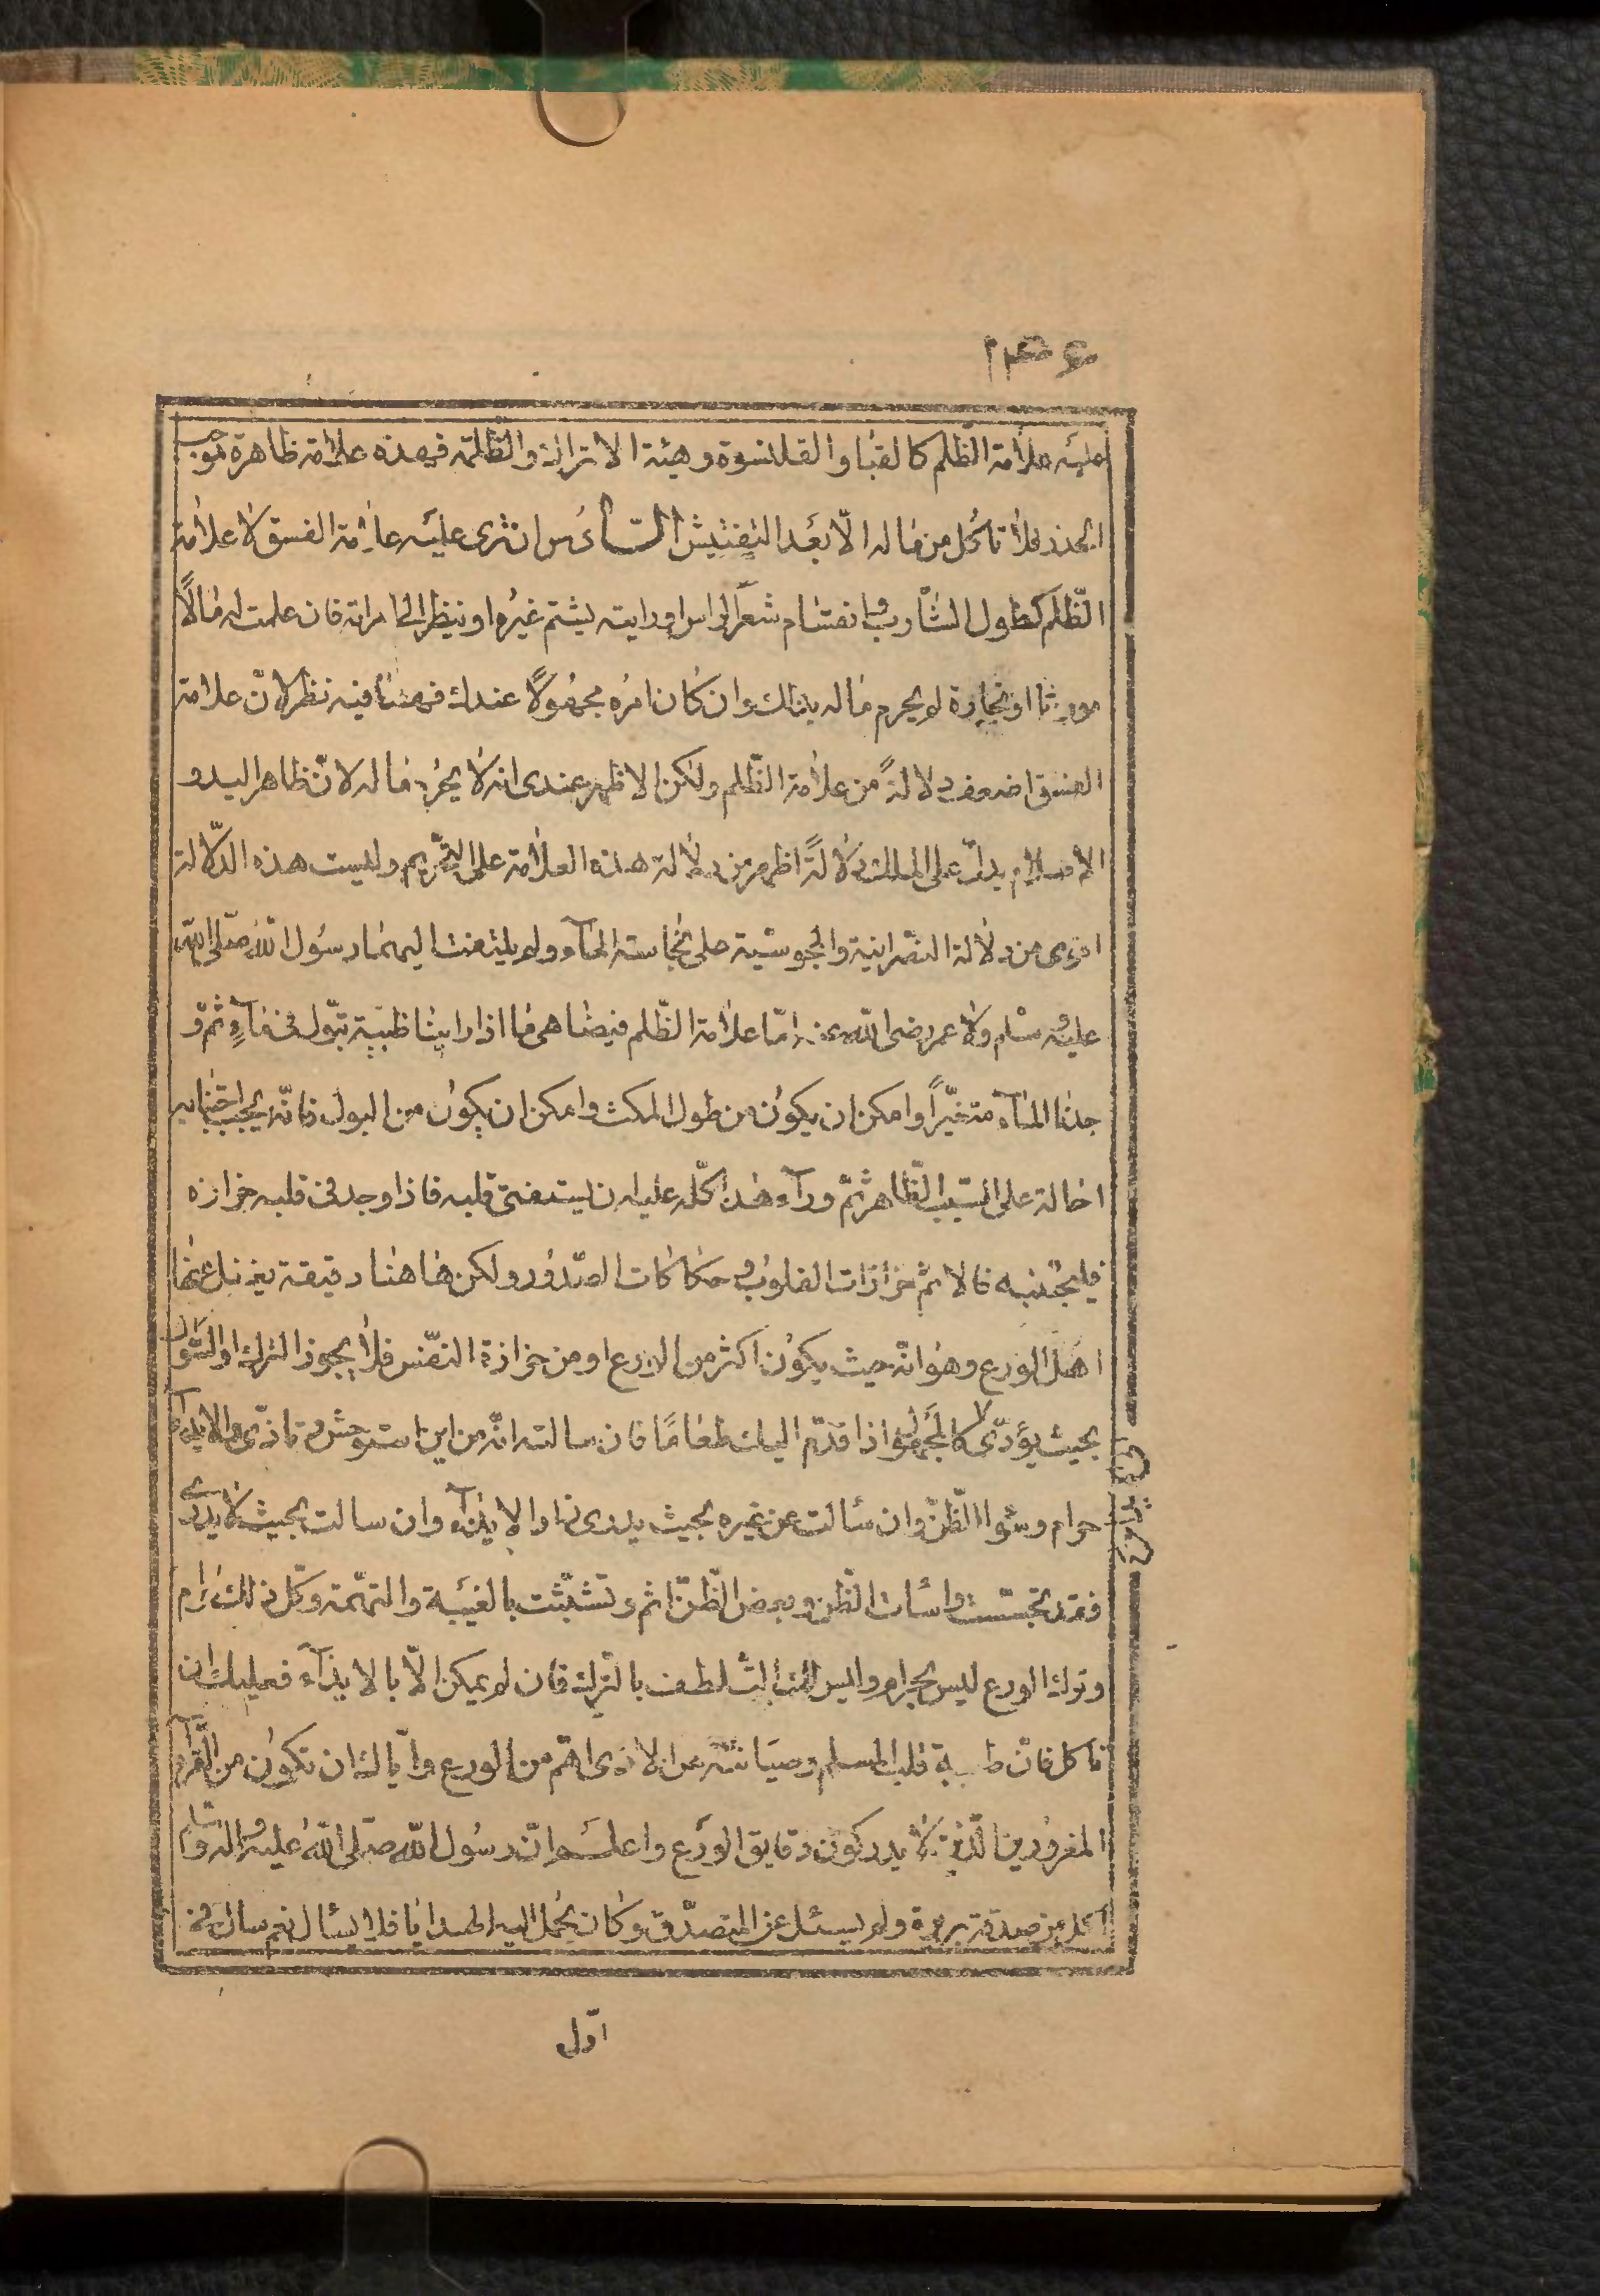 ۱۳۶
عليه علامة الظّلم كالقبا والقلنسوة وهيئة الاتراك والظّلمة فهذه علامة ظاهرة توجب
الحذر فلا تاكل من ماله الّا بعد التفتيش السّادس ان ترى عليه علامة الفسق لا علامة
الظّلم كطول الشّارب وانقسام شعر الراس او رايته يشتم غيره او ينظر الى امراة فان علمت له مالًا
موروثا او تجارة لم يحرم ماله بذلك وان كان امره مجهولًا عندك فههنا فيه نظر لانّ علامة
الفسق اضعف دلالةً من علامة الظّلم ولكن الاظهر عندى انه لا يحرم ماله لانّ ظاهر اليد و
الاسلام يدلّ على الملك دلالةً اظهر من دلالة هذه العلامة على التّحريم وليست هذه الدّلالة
اقوى من دلالة النّصرانية والمجوسيّة على نجاسة المآء ولم يلتفت اليهما رسول اللّه صلّى اللّه
عليه وسلم ولا عمر رضى اللّه عنه امّا علامة الظّلم فيضاهى ما اذا راينا ظبية تبول فى مآءٍ ثمّ و
جدنا المآء متغيّراً وامكن ان يكون من طول المكث وامكن ان يكون من البول فانّه يجب اجتنابه
احالة على السّبب الظّاهر ثمّ ورآء هذا كلّه عليه ان يستفتى قلبه فاذا وجد فى قلبه حزازه
فليجتنبه فالاثم حزازات القلوب وحكاكات الصّدور ولكن هاهنا دقيقة يغفل عنها
اهل الورع وهو انّه حيث يكون اكثر من الورع او من حزازة النّفس فلا يجوز الترك او السّوال
بحيث يؤدّى كالمجهول اذا قدّم اليك طعامًا فان سالته انّه من اين استوحش وتاذّى والايذآء
حرام وسوا الظّنّ وان سألت عن غيره بحيث يدرى زاد الايذآء وان سالت بحيث لا يدرى
فقد تجسّست واسأت الظّن وبعض الظّنّ اثم وتشبّثت بالغيبة والتهمة وكلّ ذلك حرام
وترك الورع ليس بحرام وليس لك الّا التّلطف بالترك فان لم يمكن الّا بالايذآء فعليك ان
تاكل فانّ طيبة قلب المسلم وصيانته عن الاذى اهمّ من الورع وايّاك ان تكون من القرآء
المغرورين الّذين لا يدركون دقايق الورع واعلم انّ رسول اللّه صلّى اللّه عليه واله وسلم
اكل من صدقة بريرة ولم يسئل عن المتصدّق وكان يحمل اليه الهدايا فلا يسأل نعم سال فى
اوّل